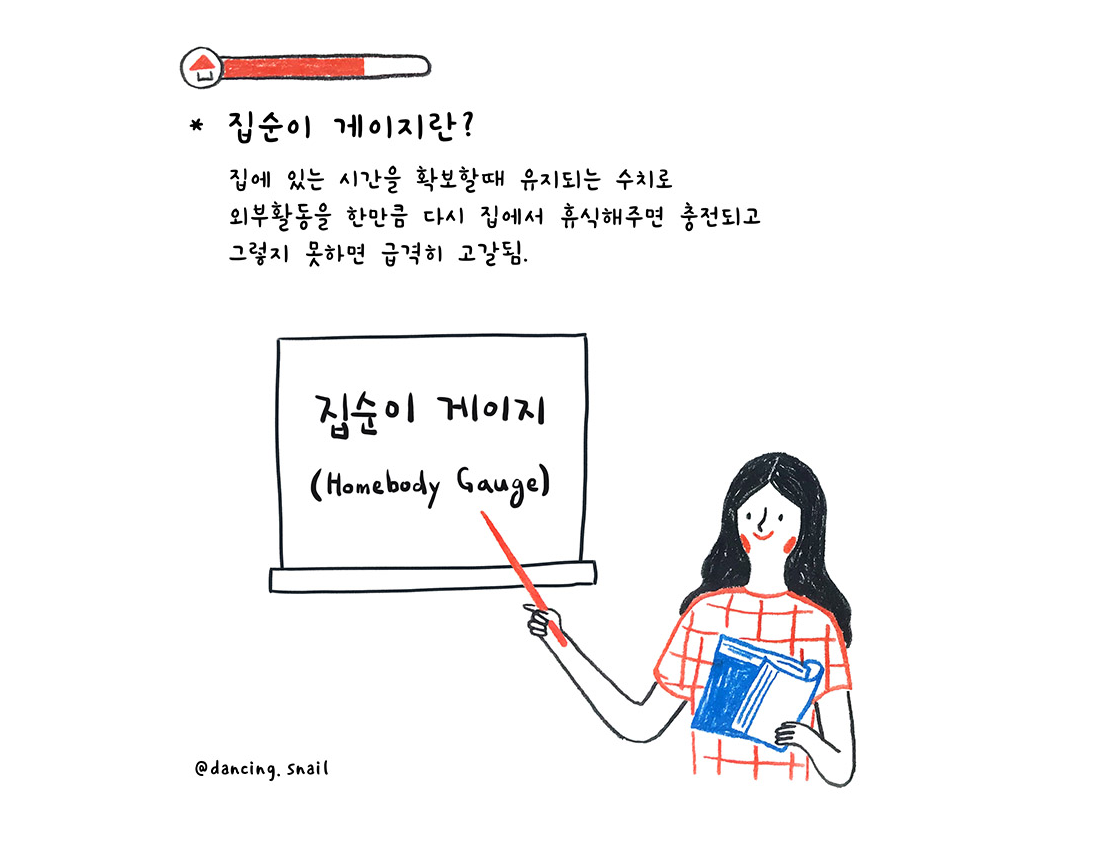 * 집순이 게이지란?
집에 있는 시간을 확보할때 유지되는 수치로
외부활동을 한만큼 다시 집에서 휴식해주면 충전되고
그렇지 못하면 급격히 고갈됨.
집순이 게이지
(Homebody Gauge)
@dancing.snail